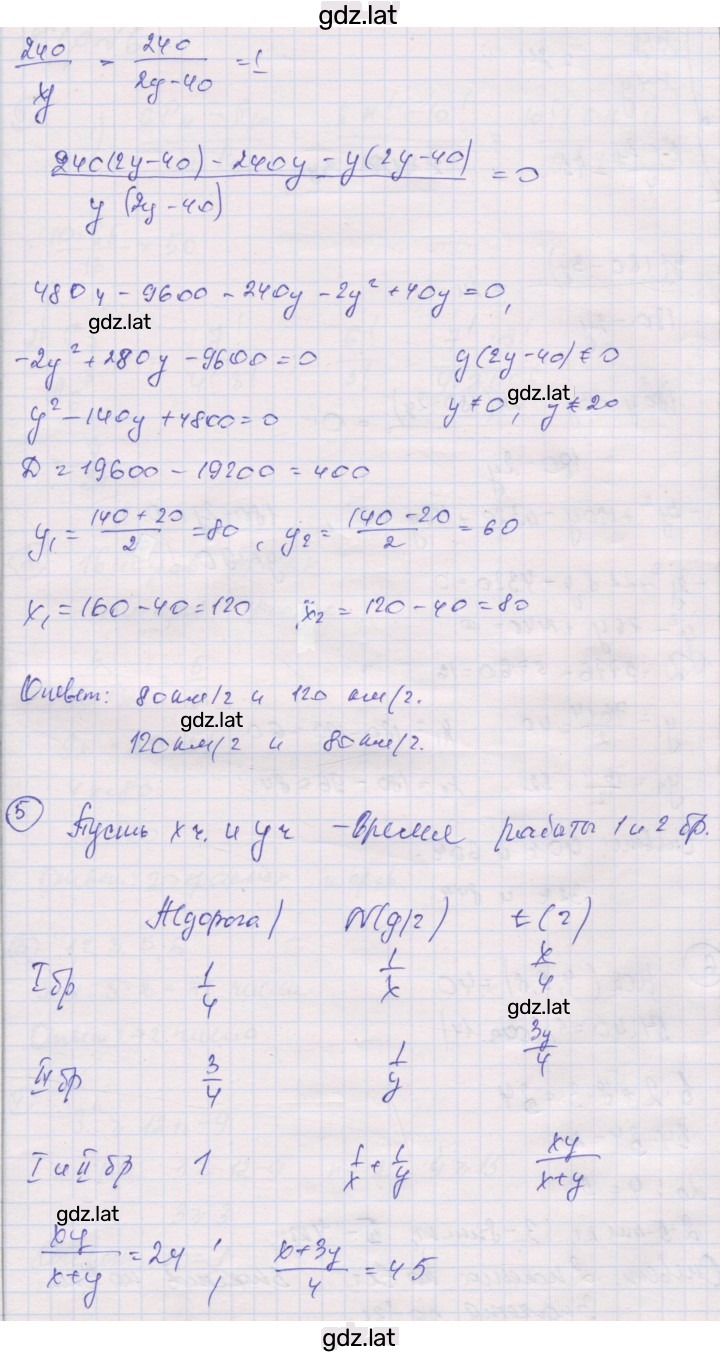 gdz.lat
240/y - 240/(2y-40) = 1
(240(2y-40) - 240y - y(2y-40)) / (y(2y-40)) = 0
480y - 9600 - 240y - 2y² + 40y = 0,
gdz.lat
-2y² + 280y - 9600 = 0 y(2y-40) ≠ 0
y² - 140y + 4800 = 0 y ≠ 0, gdz.lat y ≠ 20
D = 19600 - 19200 = 400
y₁ = (140+20)/2 = 80, y₂ = (140-20)/2 = 60
x₁ = 160 - 40 = 120 x₂ = 120 - 40 = 80
Ответ: 80 км/г и 120 км/г.
gdz.lat
120 км/г и 80 км/г.
5 Пусть x ч. и y ч - время работы 1 и 2 бр.
A(дорога) N(д/г) t(г)
I бр 1/4 1/x x/4
gdz.lat
II бр 3/4 1/y 3y/4
I и II бр 1 1/x + 1/y xy/(x+y)
gdz.lat
xy/(x+y) = 24; (x+3y)/4 = 45
gdz.lat